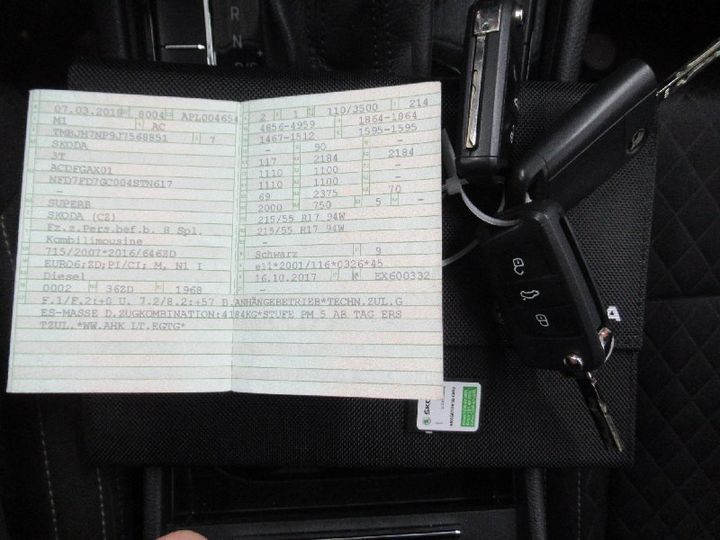 R
N
07.03.2018 8004 APL004654
M1 AC
TMBJH7NP9J7568851 7
SKODA
3T
ACDFGAX01
NFD7FD7GC004STN617
-
SUPERB
SKODA (CZ)
Fz.z.Pers.bef.b. 8 Spl.
Kombilimousine
715/2007*2016/646ZD
EURO6;ZD;PI/CI; M, N1 I
Diesel
0002 36ZD 1968
2 1 110/3500 214
4856-4959 1864-1864
1467-1512 1595-1595
- 90 -
117 2184 2184
1110 1100 -
1110 1100 -
69 2375 70
2000 750 5 -
215/55 R17 94W
215/55 R17 94W
-
Schwarz 9
e11*2001/116*0326*45
16.10.2017 EX600332
F.1/F.2:+0 U. 7.2/8.2:+57 B.ANHÄNGEBETRIEB*TECHN.ZUL.G
ES-MASSE D.ZUGKOMBINATION:4184KG*STUFE PM 5 AB TAG ERS
TZUL.*WW.AHK LT.EGTG*